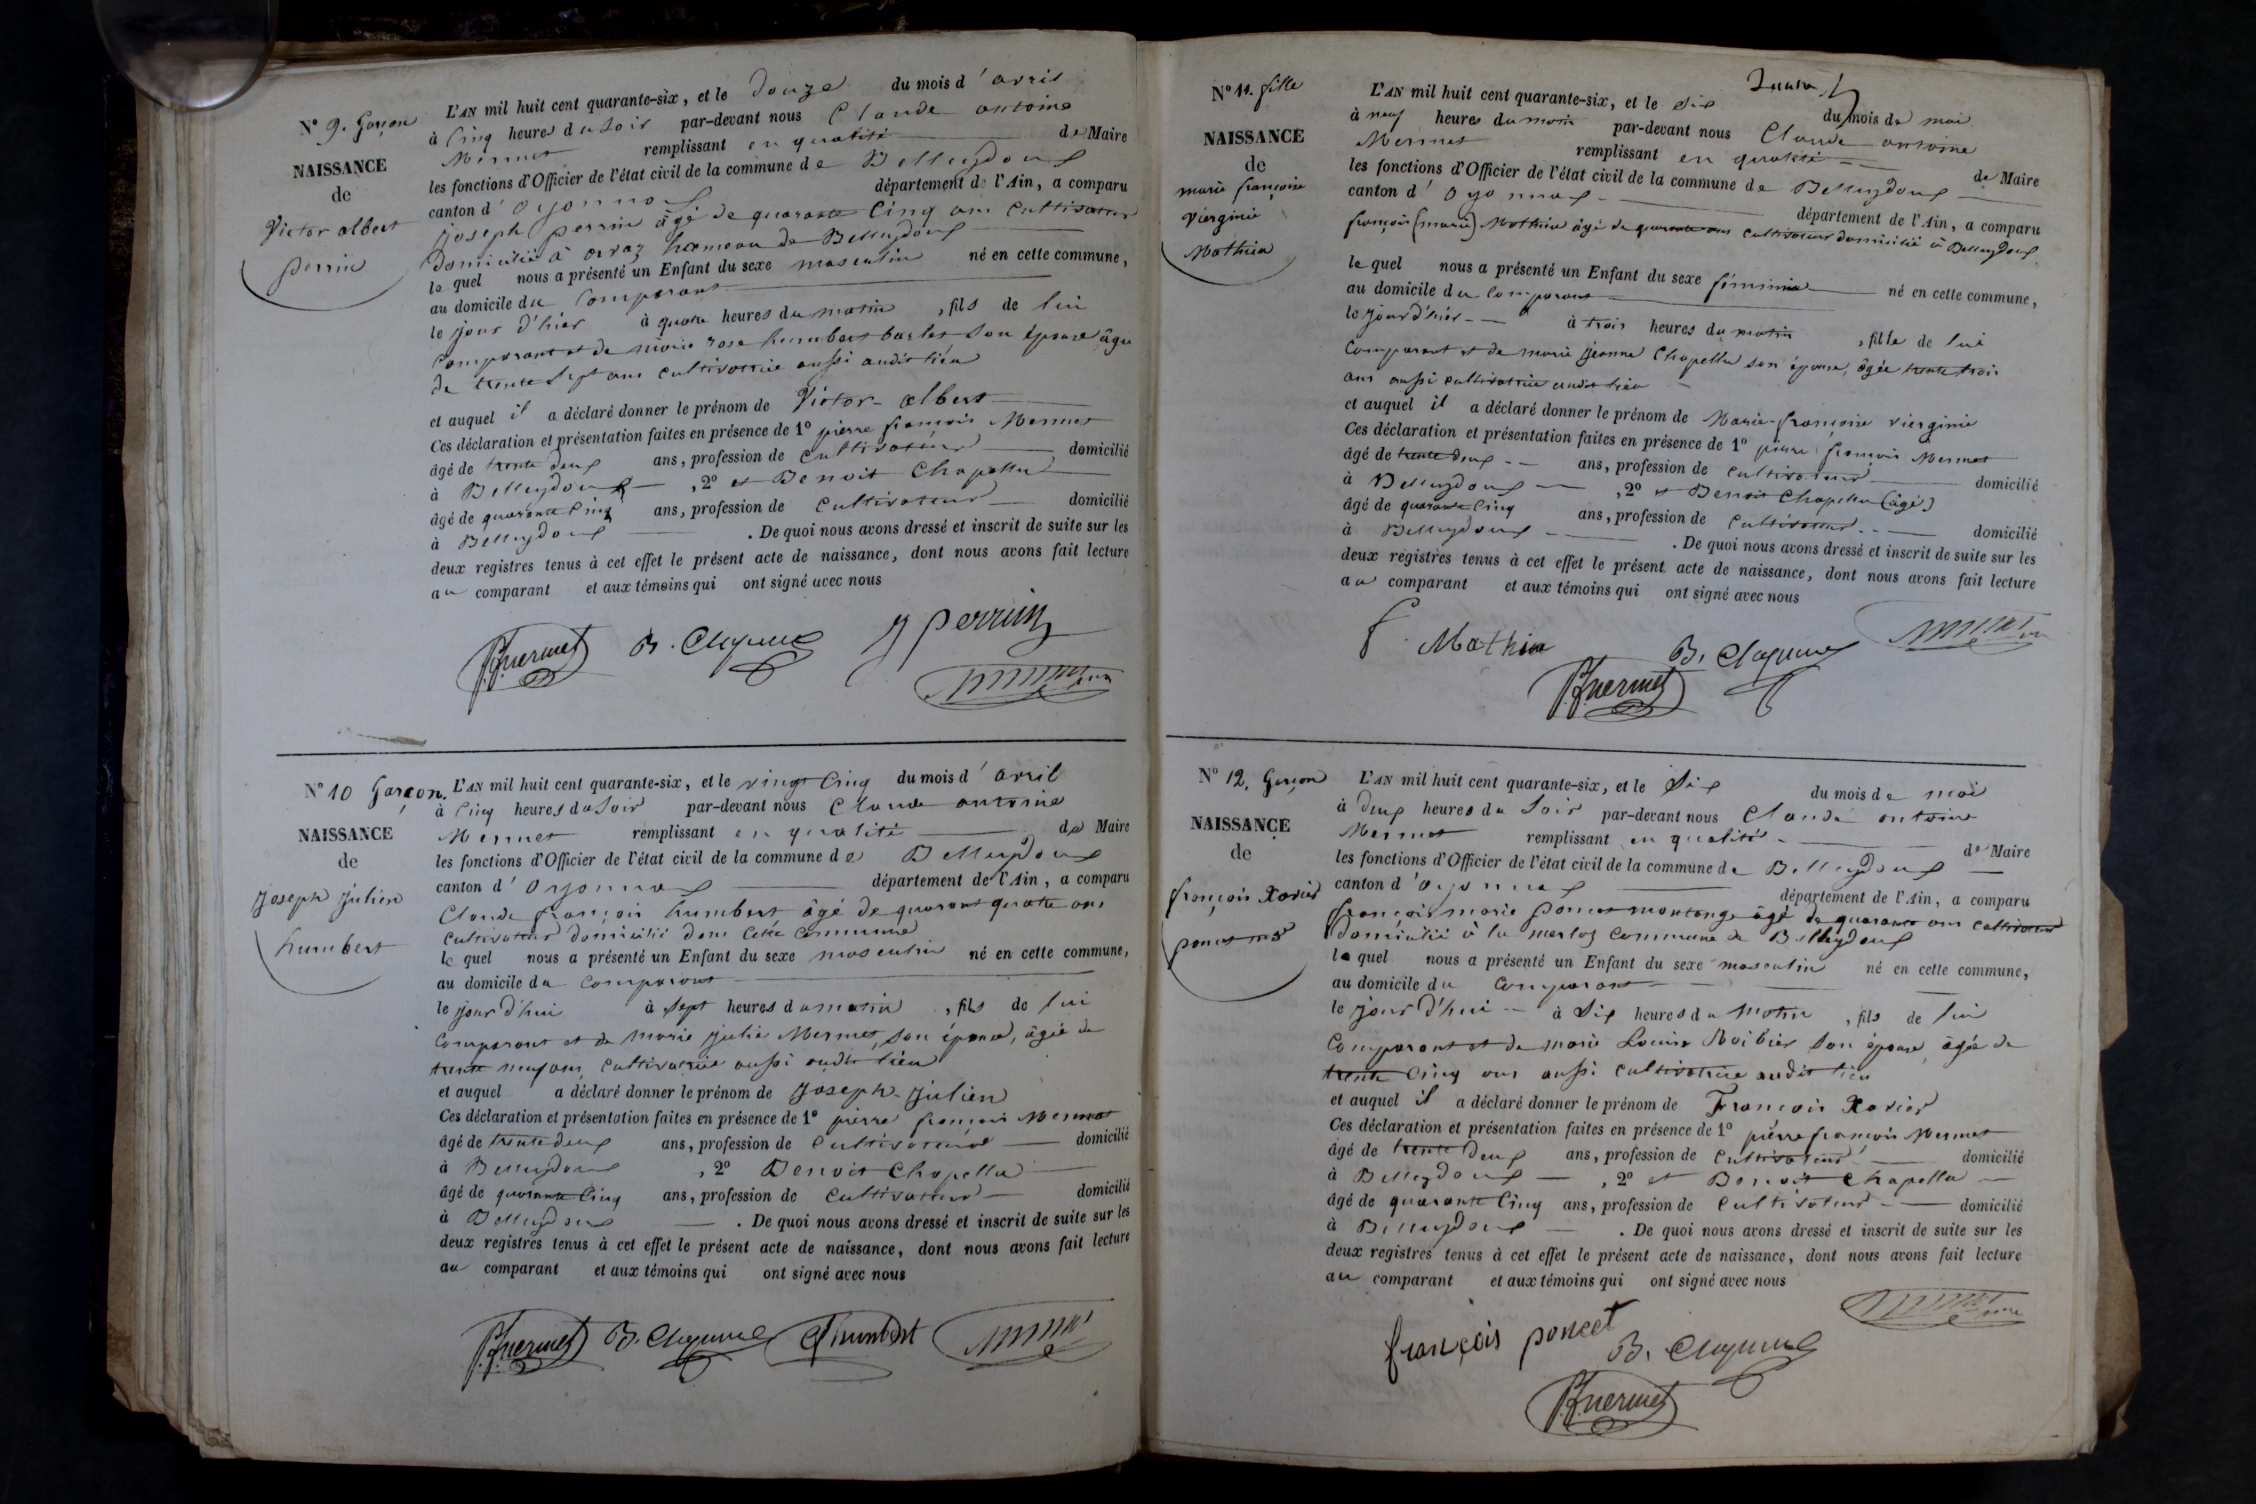 N° 9. Garçon
NAISSANCE
de
Victor albert
perrin
L'AN mil huit cent quarante-six, et le douze du mois d'avril
à Cinq heures du soir par-devant nous Claude antoine
Mermet remplissant en qualité de Maire
les fonctions d'Officier de l'état civil de la commune de Belleydoux
canton d'Oyonnax département de l'Ain, a comparu
joseph perrin âgé de quarante Cinq ans Cultivateur
Domicilié à orvaz hameau de Belleydoux
le quel nous a présenté un Enfant du sexe masculin né en cette commune,
au domicile du Comparant
le jour d'hier à quatre heures du matin, fils de lui
Comparant et de marie rose humbert barlet son épouse âgée
de trente sept ans cultivatrice aussi audit lieu
et auquel il a déclaré donner le prénom de Victor-albert
Ces déclaration et présentation faites en présence de 1° pierre françois Mermet
âgé de trente deux ans, profession de Cultivateur domicilié
à Belleydoux, 2° et Benoit Chapellu
âgé de quarante Cinq ans, profession de Cultivateur domicilié
à Belleydoux. De quoi nous avons dressé et inscrit de suite sur les
deux registres tenus à cet effet le présent acte de naissance, dont nous avons fait lecture
au comparant et aux témoins qui ont signé avec nous
P.f. mermet B. J perrin
N° 10 Garçon.
NAISSANCE
de
Joseph Julien
humbert
L'AN mil huit cent quarante-six, et le vingt Cinq du mois d'avril
à Cinq heures du Soir par-devant nous Claude antoine
Mermet remplissant en qualité de Maire
les fonctions d'Officier de l'état civil de la commune de Belleydoux
canton d'Oyonnax département de l'Ain, a comparu
Claude françois humbert âgé de quarant quatre ans
Cultivateur domicilié dans Cette Commune
le quel nous a présenté un Enfant du sexe masculin né en cette commune,
au domicile du Comparant
le jour d'hui à sept heures du matin, fils de lui
Comparant et de marie julie Mermet, son épouse, âgée de
trente neuf ans, Cultivatrice aussi audit lieu
et auquel a déclaré donner le prénom de Joseph-Julien
Ces déclaration et présentation faites en présence de 1° pierre françois Mermet
âgé de trente deux ans, profession de Cultivateur domicilié
à Belleydoux, 2° Benoit Chapellu
âgé de quarante Cinq ans, profession de Cultivateur domicilié
à Belleydoux. De quoi nous avons dressé et inscrit de suite sur les
deux registres tenus à cet effet le présent acte de naissance, dont nous avons fait lecture
au comparant et aux témoins qui ont signé avec nous
P.f. mermet B. humbert
N° 11. fille
NAISSANCE
de
marie françoise
vierginie
Mathieu
L'AN mil huit cent quarante-six, et le Six du mois de mai
à neuf heures du matin par-devant nous Claude antoine
Mermet remplissant en qualité de Maire
les fonctions d'Officier de l'état civil de la commune de Belleydoux
canton d'Oyonnax département de l'Ain, a comparu
françois (marie) Mathieu âgé de quarante ans cultivateur domicilié à Belleydoux
le quel nous a présenté un Enfant du sexe féminin né en cette commune,
au domicile du Comparant
le jour d'hier à trois heures du matin, fille de lui
Comparant et de marie jeanne Chapellu son épouse, âgée trente trois
ans aussi cultivatrice audit lieu
et auquel il a déclaré donner le prénom de Marie-françoise vierginie
Ces déclaration et présentation faites en présence de 1° pierre françois Mermet
âgé de trente deux ans, profession de Cultivateur domicilié
à Belleydoux, 2° et Benoit Chapellu (âgé)
âgé de quarante Cinq ans, profession de Cultivateur domicilié
à Belleydoux. De quoi nous avons dressé et inscrit de suite sur les
deux registres tenus à cet effet le présent acte de naissance, dont nous avons fait lecture
au comparant et aux témoins qui ont signé avec nous
f. Mathieu B.
P.f. mermet
N° 12. Garçon
NAISSANCE
de
françois Xavier
poncet
L'AN mil huit cent quarante-six, et le Six du mois de mai
à deux heures du Soir par-devant nous Claude antoine
Mermet remplissant en qualité de Maire
les fonctions d'Officier de l'état civil de la commune de Belleydoux
canton d'Oyonnax département de l'Ain, a comparu
françois marie poncet montange âgé de quarante ans cultivateur
domicilié à la merloz Commune de Belleydoux
le quel nous a présenté un Enfant du sexe masculin né en cette commune,
au domicile du Comparant
le jour d'hui à Six heures du Matin, fils de lui
Comparant et de marie Louise Roibier son épouse, âgée de
trente Cinq ans aussi cultivatrice audit lieu
et auquel il a déclaré donner le prénom de François Xavier
Ces déclaration et présentation faites en présence de 1° pierre françois Mermet
âgé de trente deux ans, profession de Cultivateur domicilié
à Belleydoux, 2° et Benoit Chapellu
âgé de quarante Cinq ans, profession de Cultivateur domicilié
à Belleydoux. De quoi nous avons dressé et inscrit de suite sur les
deux registres tenus à cet effet le présent acte de naissance, dont nous avons fait lecture
au comparant et aux témoins qui ont signé avec nous
françois poncet B.
P.f. mermet